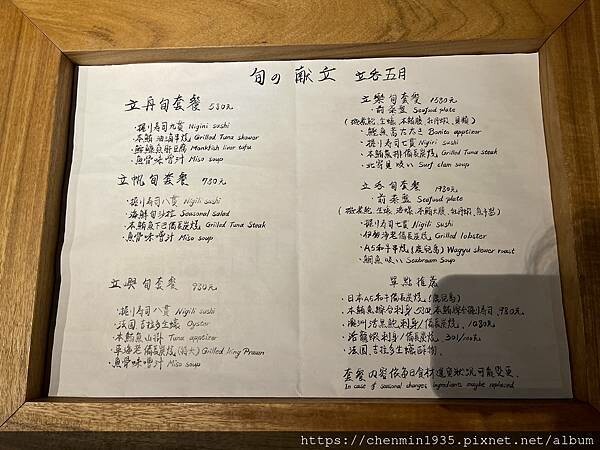 旬の献立 立吞五月
立丹旬套餐 580元
・握り寿司九貫 Nigini sushi
・本鮪油滷串燒 Grilled Tuna shower
・鮟鱇魚肝豆腐 Monkfish liver tofu
・魚骨味噌汁 Miso soup
立帆旬套餐 780元
・握り寿司八貫 Nigili sushi
・海鮮旬沙拉 Seasonal Salad
・本鮪魚下巴備長炭燒 Grilled Tuna Steak
・魚骨味噌汁 Miso soup
旬套餐 980元
・握り寿司八貫 Nigili sushi
・法國吉拉多生蠔 Oyster
・本鮪魚山掛 Tuna appetizer
・草海老備長炭燒(特大) Grilled king Prawn
・魚骨味噌汁 Miso soup
立樂旬套餐 1580元
・前菜盤 Seafood plate
・鰹魚 Bonito appetizer
・握り寿司七貫 Nigiri sushi
・本鮪魚排備長炭燒 Grilled Tuna steak
・北寄貝吸い Surf clam soup
立吞旬套餐 1980元
・前菜盤 Seafood plate
・握り寿司七貫 Nigili sushi
・伊勢海老備長炭燒 Grilled lobster
・A5和牛串燒(鹿兒島) Wagyu shower roast
・鯛魚吸い Seabream Soup
單點推薦
・日本A5和牛備長炭燒(鹿兒島)
・本鮪魚綜合刺身/切四本鮪綜合握り寿司. 980元
・澳洲活黑鮑刺身/備長炭燒. 1080元
・活龍蝦刺身/備長炭燒. 300/100元
・法國吉拉多生蠔酢物.
套餐內容依每日食材進貨狀況可能變更.
In case of seasonal changes, ingredients maybe replaced
https://chenmin1935.pixnet.net/album